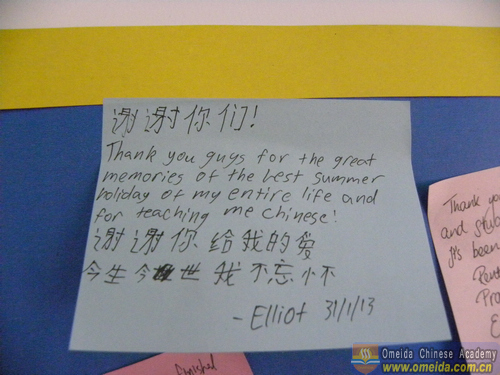 谢谢你们!
Thank you guys for the great
memories of the best summer
holiday of my entire life and
for teaching me Chinese!
谢谢你给我的爱
今生今世我不忘怀
-Elliot 31/1/13
Thank you
and stu
It's been
Pro
E
finished
Omeida Chinese Academy
www.omeida.com.cn